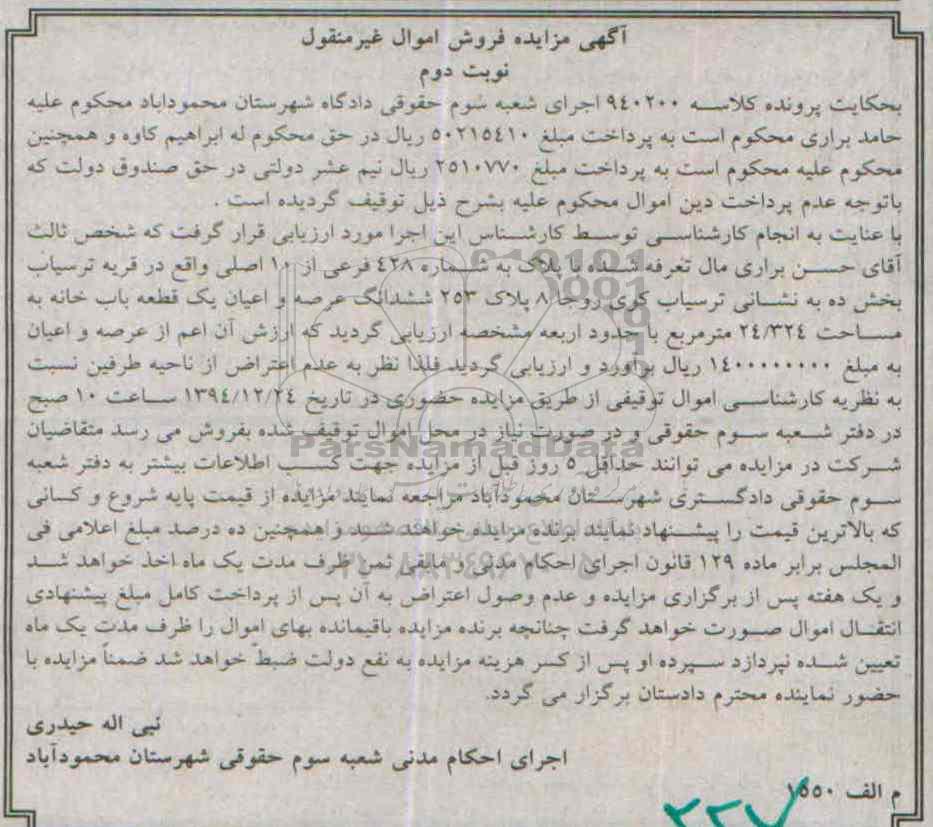 آگهی مزایده فروش اموال غیرمنقول
نوبت دوم
بحکایت پرونده کلاسه ۹٤۰۲۰۰ اجرای شعبه سوم حقوقی دادگاه شهرستان محموداباد محکوم علیه
حامد براری محکوم است به پرداخت مبلغ ٥۰۲۱٥٤۱۰ ریال در حق محکوم له ابراهیم کاوه و همچنین
محکوم علیه محکوم است به پرداخت مبلغ ۲٥۱۰۷۷۰ ریال نیم عشر دولتی در حق صندوق دولت که
باتوجه عدم پرداخت دین اموال محکوم علیه بشرح ذیل توقیف گردیده است .
با عنایت به انجام کارشناسی توسط کارشناس این اجرا مورد ارزیابی قرار گرفت که شخص ثالث
آقای حسن براری مال تعرفه شده با پلاک به شماره ٤۲۸ فرعی از ۱۰ اصلی واقع در قریه ترسیاب
بخش ده به نشانی ترسیاب کوی روجا ۸ پلاک ۲٥۳ ششدانگ عرصه و اعیان یک قطعه باب خانه به
مساحت ۲٤/۳۲٤ مترمربع با حدود اربعه مشخصه ارزیابی گردید که ارزش آن اعم از عرصه و اعیان
به مبلغ ۱٤۰۰۰۰۰۰۰۰ ریال برآورد و ارزیابی گردید فلذا نظر به عدم اعتراض از ناحیه طرفین نسبت
به نظریه کارشناسی اموال توقیفی از طریق مزایده حضوری در تاریخ ۱۳۹٤/۱۲/۲٤ ساعت ۱۰ صبح
در دفتر شعبه سوم حقوقی و در صورت نیاز در محل اموال توقیف شده بفروش می رسد متقاضیان
شرکت در مزایده می توانند حداقل ٥ روز قبل از مزایده جهت کسب اطلاعات بیشتر به دفتر شعبه
سوم حقوقی دادگستری شهرستان محمودآباد مراجعه نمایند مزایده از قیمت پایه شروع و کسانی
که بالاترین قیمت را پیشنهاد نمایند برنده مزایده خواهند شد و همچنین ده درصد مبلغ اعلامی فی
المجلس برابر ماده ۱۲۹ قانون اجرای احکام مدنی و مابقی ثمن ظرف مدت یک ماه اخذ خواهد شد
و یک هفته پس از برگزاری مزایده و عدم وصول اعتراض به آن پس از پرداخت کامل مبلغ پیشنهادی
انتقال اموال صورت خواهد گرفت چنانچه برنده مزایده باقیمانده بهای اموال را ظرف مدت یک ماه
تعیین شده نپردازد سپرده او پس از کسر هزینه مزایده به نفع دولت ضبط خواهد شد ضمناً مزایده با
حضور نماینده محترم دادستان برگزار می گردد.
نبی اله حیدری
اجرای احکام مدنی شعبه سوم حقوقی شهرستان محمودآباد
م الف ۱٥٥۰
ParsNamadData